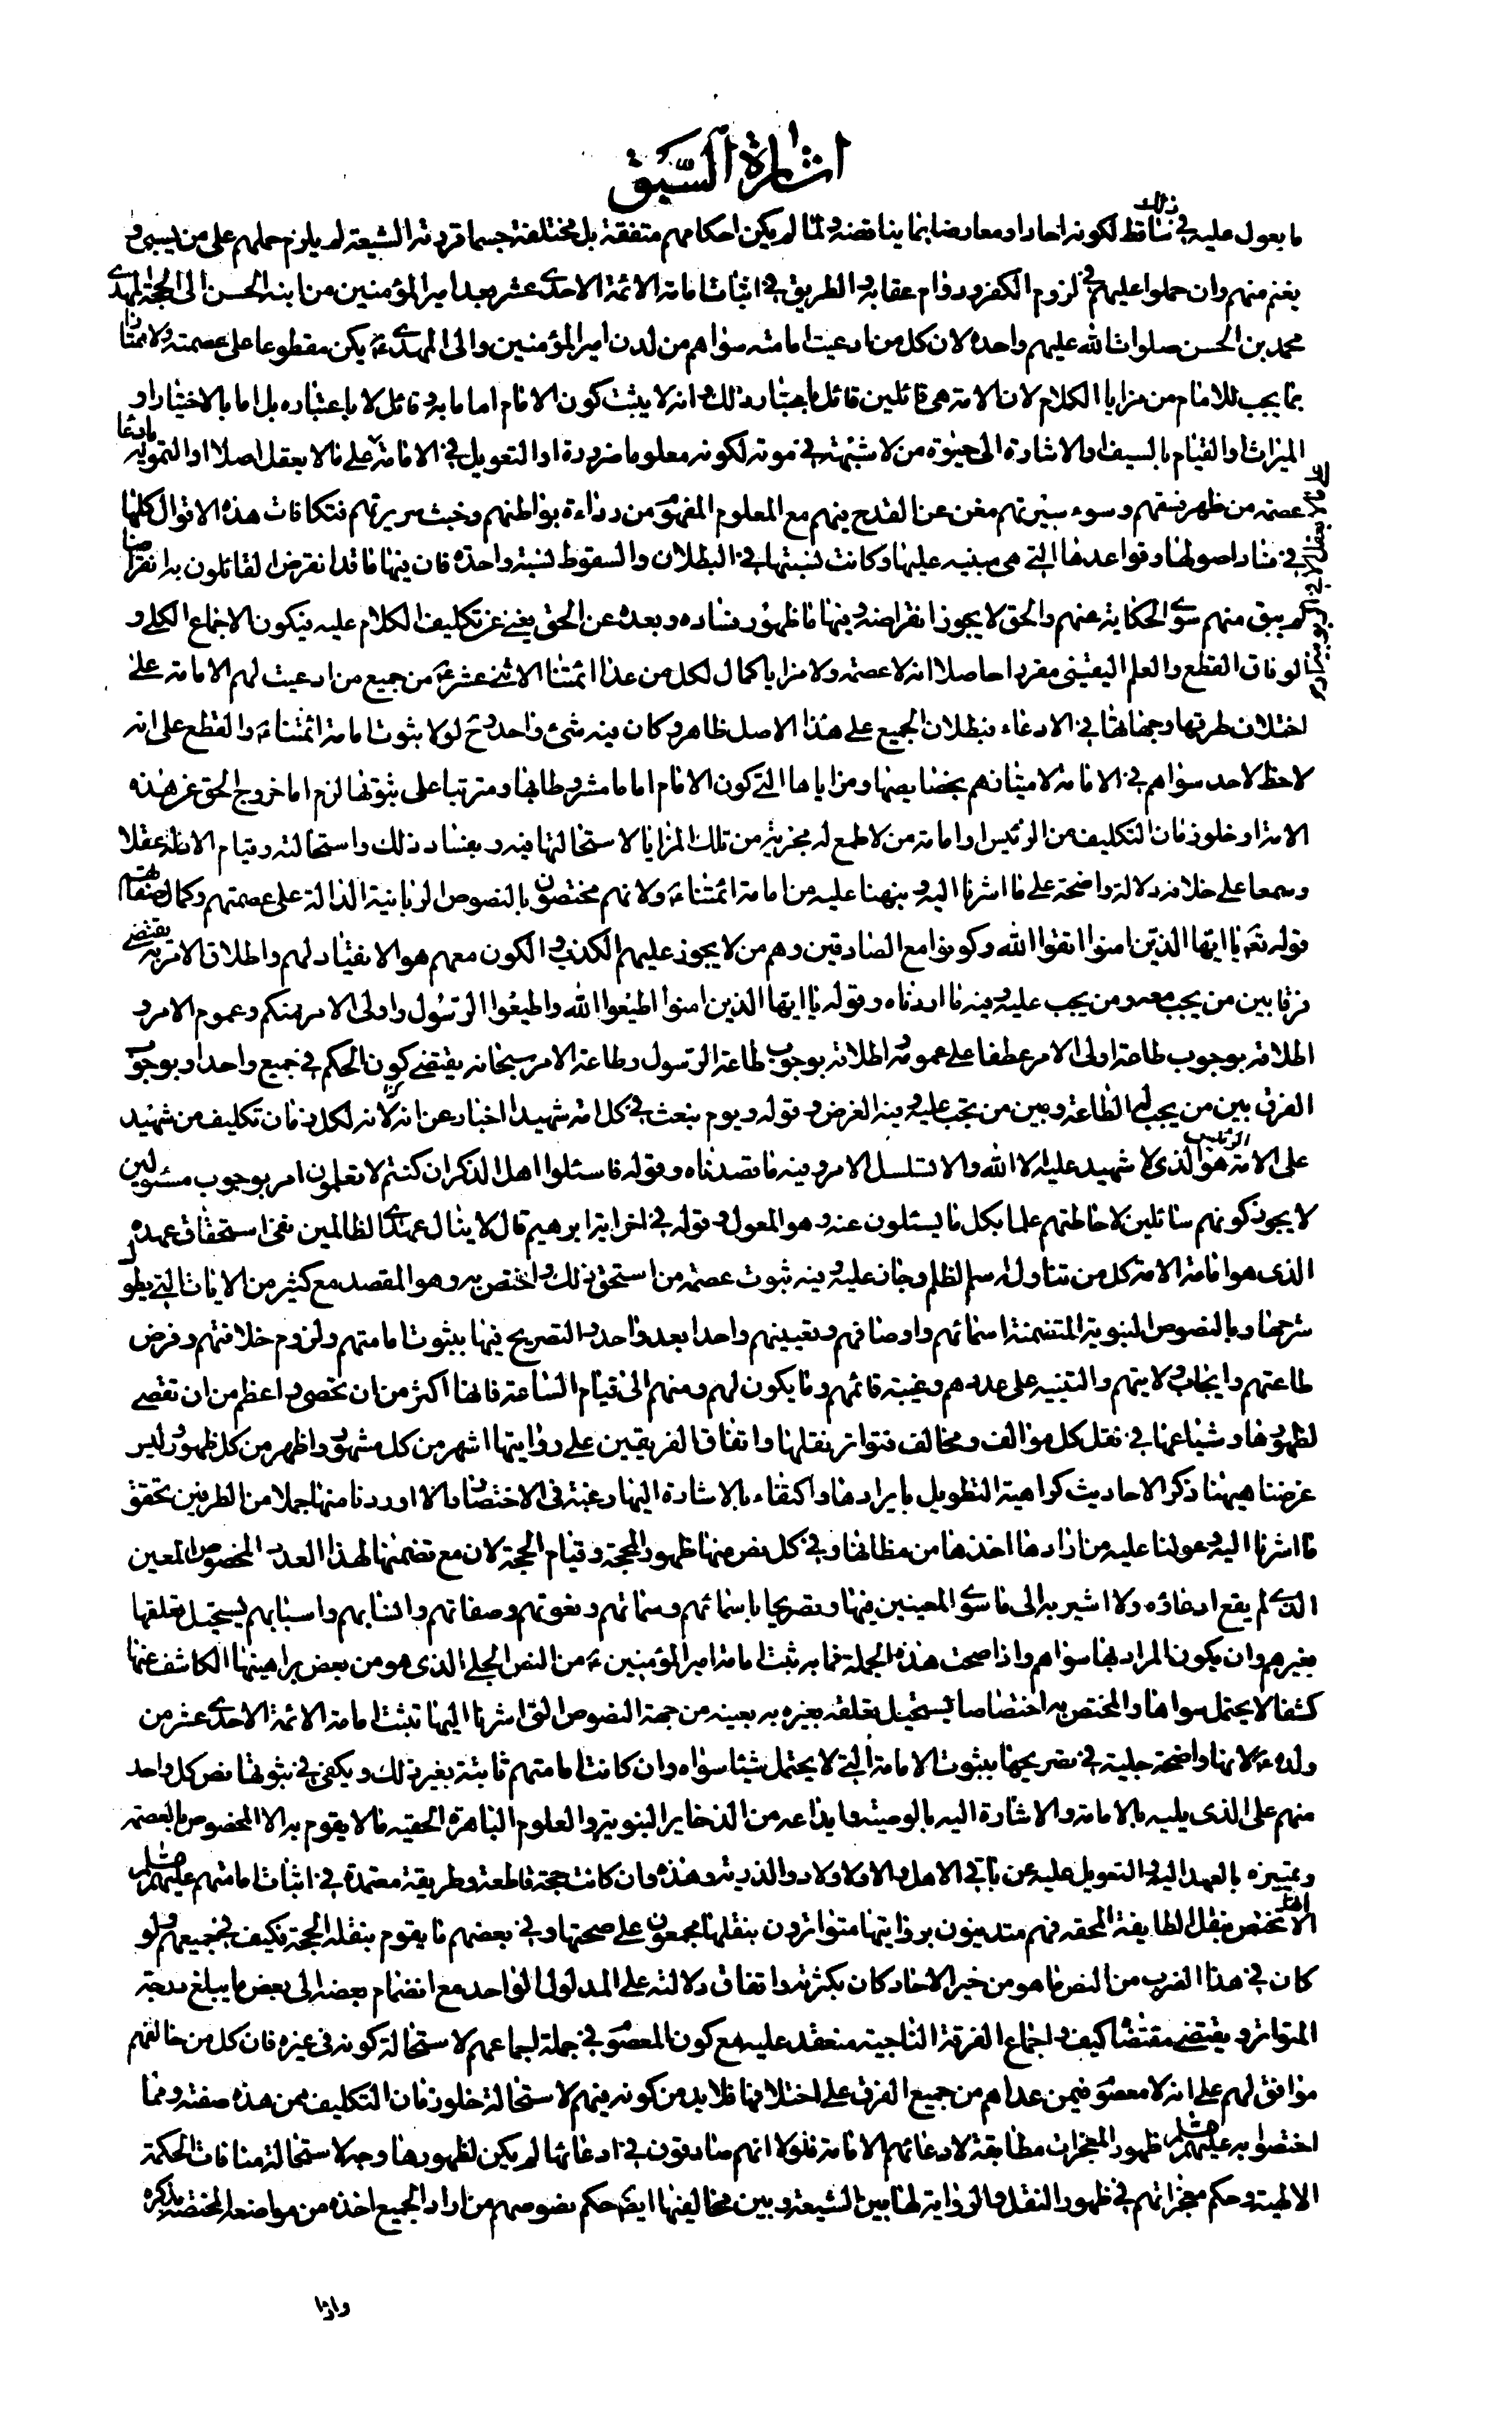 اشارة السبق
ما يعول عليه في ذلك ساقط لكونه احادا ومعارضا بما يناقضه ولما لم يكن احكامهم متفقة بل مختلفة حسما قررته الشيعة لم يلزم حملهم على من يسبى و
يغنم منهم وان حملوا عليهم في لزوم الكفر ودوام عقابه والطريق في اثبات امامة الائمة الاحدى عشر بعد امير المؤمنين من ابنه الحسن الى الحجة المهدي
محمد بن الحسن صلوات الله عليهم واحدة لان كل من ادعيت امامته سواهم من لدن امير المؤمنين والى المهدي ع لم يكن مقطوعا على عصمته ولا ممتازا
بما يجب للامام من مزايا الكلام لان الامة هي قائلين قائل باعتبار ذلك وانه لا يثبت كون الامام اماما به وقائل لا باعتباره بل اما بالاختيار او
الميراث او القيام بالسيف والاشارة الى حيوة من لا شبهة في موته لكونه معلوما ضرورة او التعويل في الامامة على ما لا يعقل اصلا او التمويه بادعا
عصمة من ظهر فسقهم وسوء سيرتهم مغن عن القدح فيهم مع المعلوم المفهوم من رداءة بواطنهم وخبث سريرتهم فتكافات هذه الاقوال كلها
في فساد اصولها وقواعدها التي هي مبنيه عليها وكانت نسبتها في البطلان والسقوط نسبة واحدة فان فيها ما قد انقرض القائلون به انقراضا
لم يبق منهم سوى الحكاية عنهم والحق لا يجوز انقراضه وفيها ما ظهور فساده وبعده عن الحق يغني عن تكليف الكلام عليه فيكون الاجماع الكلي و
الوفاق القطع والعلم اليقيني مفردا حاصلا انه لا عصمة ولا مزايا كمال لكل من عدا ائمتنا الاثني عشر ع من جميع من ادعيت لهم الامامة على
اختلاف طرقها وجهاتها في الادعاء فبطلان الجميع على هذا الاصل ظاهر وكان فيه شئ واحد وح لولا ثبوت امامة ائمتنا ع والقطع على انه
لا حظ لاحد سواهم في الامامة لامتيازهم بخصايصها ومزاياها التي كون الامام اماما مشروطا بها ومترتبا على ثبوتها لزم اما خروج الحق عن هذه
الامة او خلو زمان التكليف من الرئيس او امامة من لا طمع له بمزية من تلك المزايا لاستحالتها فيه وبفساد ذلك واستحالته وقيام الادلة عقلا
وسمعا على خلافه دلالة واضحة على ما اشرنا اليه ونبهنا عليه من امامة ائمتنا ع ولانهم مختصون بالنصوص الربانية الدالة على عصمتهم وكمال صفاتهم
قوله تع يا ايها الذين امنوا اتقوا الله وكونوا مع الصادقين وهم من لا يجوز عليهم الكذب والكون معهم هو الانقياد لهم واطلاق الامر به يقتضي
فرقا بين من يجب معه ومن يجب عليه وفيه ما اردناه وقوله يا ايها الذين امنوا اطيعوا الله واطيعوا الرسول واولى الامر منكم وعموم الامر و
اطلاقه بوجوب طاعة اولى الامر عطفا على عمومه واطلاقه بوجوب طاعة الرسول وطاعة الامر سبحانه يقتضي كون الحكم في جميع واحدا وبوجوب
الفرق بين من يجب له الطاعة وبين من يجب عليه وفيه الغرض وقوله ويوم نبعث في كل امة شهيدا اخبار عن انه لابد لكل زمان تكليف من شهيد
على الامة هو الرئيس الذي لا شهيد عليه الا الله والا لتسلسل الامر وفيه ما قصدناه وقوله فاسئلوا اهل الذكر ان كنتم لا تعلمون امر بوجوب مسئولين
لا يجوز كونهم سائلين لاحاطتهم علما بكل ما يسئلون عنه وهو المعول وقوله في اخر اية ابرهيم قال لا ينال عهدي الظالمين نفى استحقاق عهده
الذي هو امامة الامة كل من تناوله اسم الظلم وجاز عليه وفيه ثبوت عصمة من استحق ذلك واختص به وهو المقصد مع كثير من الايات التي يطول
شرحها وبالنصوص النبوية المتضمنة اسمائهم واوصافهم وتعيينهم واحدا بعد واحد والتصريح فيها بثبوت امامتهم ولزوم خلافتهم وفرض
طاعتهم وايجاب ولايتهم والتنبيه على عددهم وغيبة قائمهم وما يكون لهم ومنهم الى قيام الساعة فانها اكثر من ان تحصى واعظم من ان تقصى
لظهورها وشياعها في نقل كل موالف ومخالف فتواتر نقلها واتفاق الفريقين على روايتها اشهر من كل مشهور واظهر من كل ظهور وليس
غرضنا هيهنا ذكر الاحاديث كراهية التطويل بايرادها واكتفاء بالاشارة اليها ورغبة في الاختصار والا اوردنا منها جملا من الطريقين تحقق
ما اشرنا اليه وعولنا عليه من ارادها اخذها من مظانها وفي كل نص منها ظهور المحجة وقيام الحجة لان مع تضمنها لهذا العدد المخصوص المعين
الذي لم يقع ادعاؤه ولا اشير به الى ما سوى المعينين فيها وتصريحا باسمائهم وسماتهم ونعوتهم وصفاتهم وانسابهم واسبابهم يستحيل تعلقها
بغيرهم وان يكون المراد بها سواهم واذا صحت هذه الجملة فما به ثبت امامة امير المؤمنين ع من النص الجلي الذي هو من بعض براهينها الكاشف عنها
كشفا لا يحتمل سواها والمختص به اختصاصا يستحيل تعلقه بغيره به بعينه من جهة النصوص التي اشرنا اليها تثبت امامة الائمة الاحدى عشر من
ولده ع لانها واضحة جلية في تصريحها بثبوت الامامة التي لا يحتمل شيئا سواه وان كانت امامتهم ثابتة بغير ذلك ويكفي في ثبوتها نص كل واحد
منهم على الذي يليه بالامامة والاشارة اليه بالوصية وايداعه من الذخاير النبوية والعلوم الباهرة الحقيه ما لا يقوم به الا المخصوص بالعصمة
وتمييزه بالعهد اليه والتعويل عليه عن باقي الاهل والاولاد والذرية وهذه وان كانت حجة قاطعة وطريقة معتمدة في اثبات امامتهم عليهم السلم
الا انها تختص بنقل الطايفة المحقة فهم متدينون بروايتها متواترون بنقلها مجمعون على صحتها وفي بعضهم ما يقوم بنقله الحجة فكيف في جميعهم ولو
كان في هذا الضرب من النص ما هو من خبر الاحاد كان بكثرته واتفاق دلالته على المدلول الواحد مع انضمام بعضه الى بعض ما يبلغ درجة
المتواتر ويقتضي مقتضاه كيف واجماع الفرقة الناجية منعقد عليه مع كون المعصوم في جملة اجماعهم لاستحالة كونه في غيره فان كل من خالفهم
موافق لهم على انه لا معصوم فيمن عداهم من جميع الفرق على اختلافها فلابد من كونه فيهم لاستحالة خلو زمان التكليف ممن هذه صفته ومما
اختصوا به عليهم السلم ظهور المعجزات مطابقة لادعائهم الامامة فلولا انهم صادقون في ادعائها لم يكن لظهورها وجه لاستحالة منافات الحكمة
الالهية وحكم معجزاتهم في ظهور النقل والرواية لها بين الشيعة وبين مخالفيها ايضا حكم نصوصهم من اراد الجميع اخذه من مواضعه المختصة بذكره
واذا